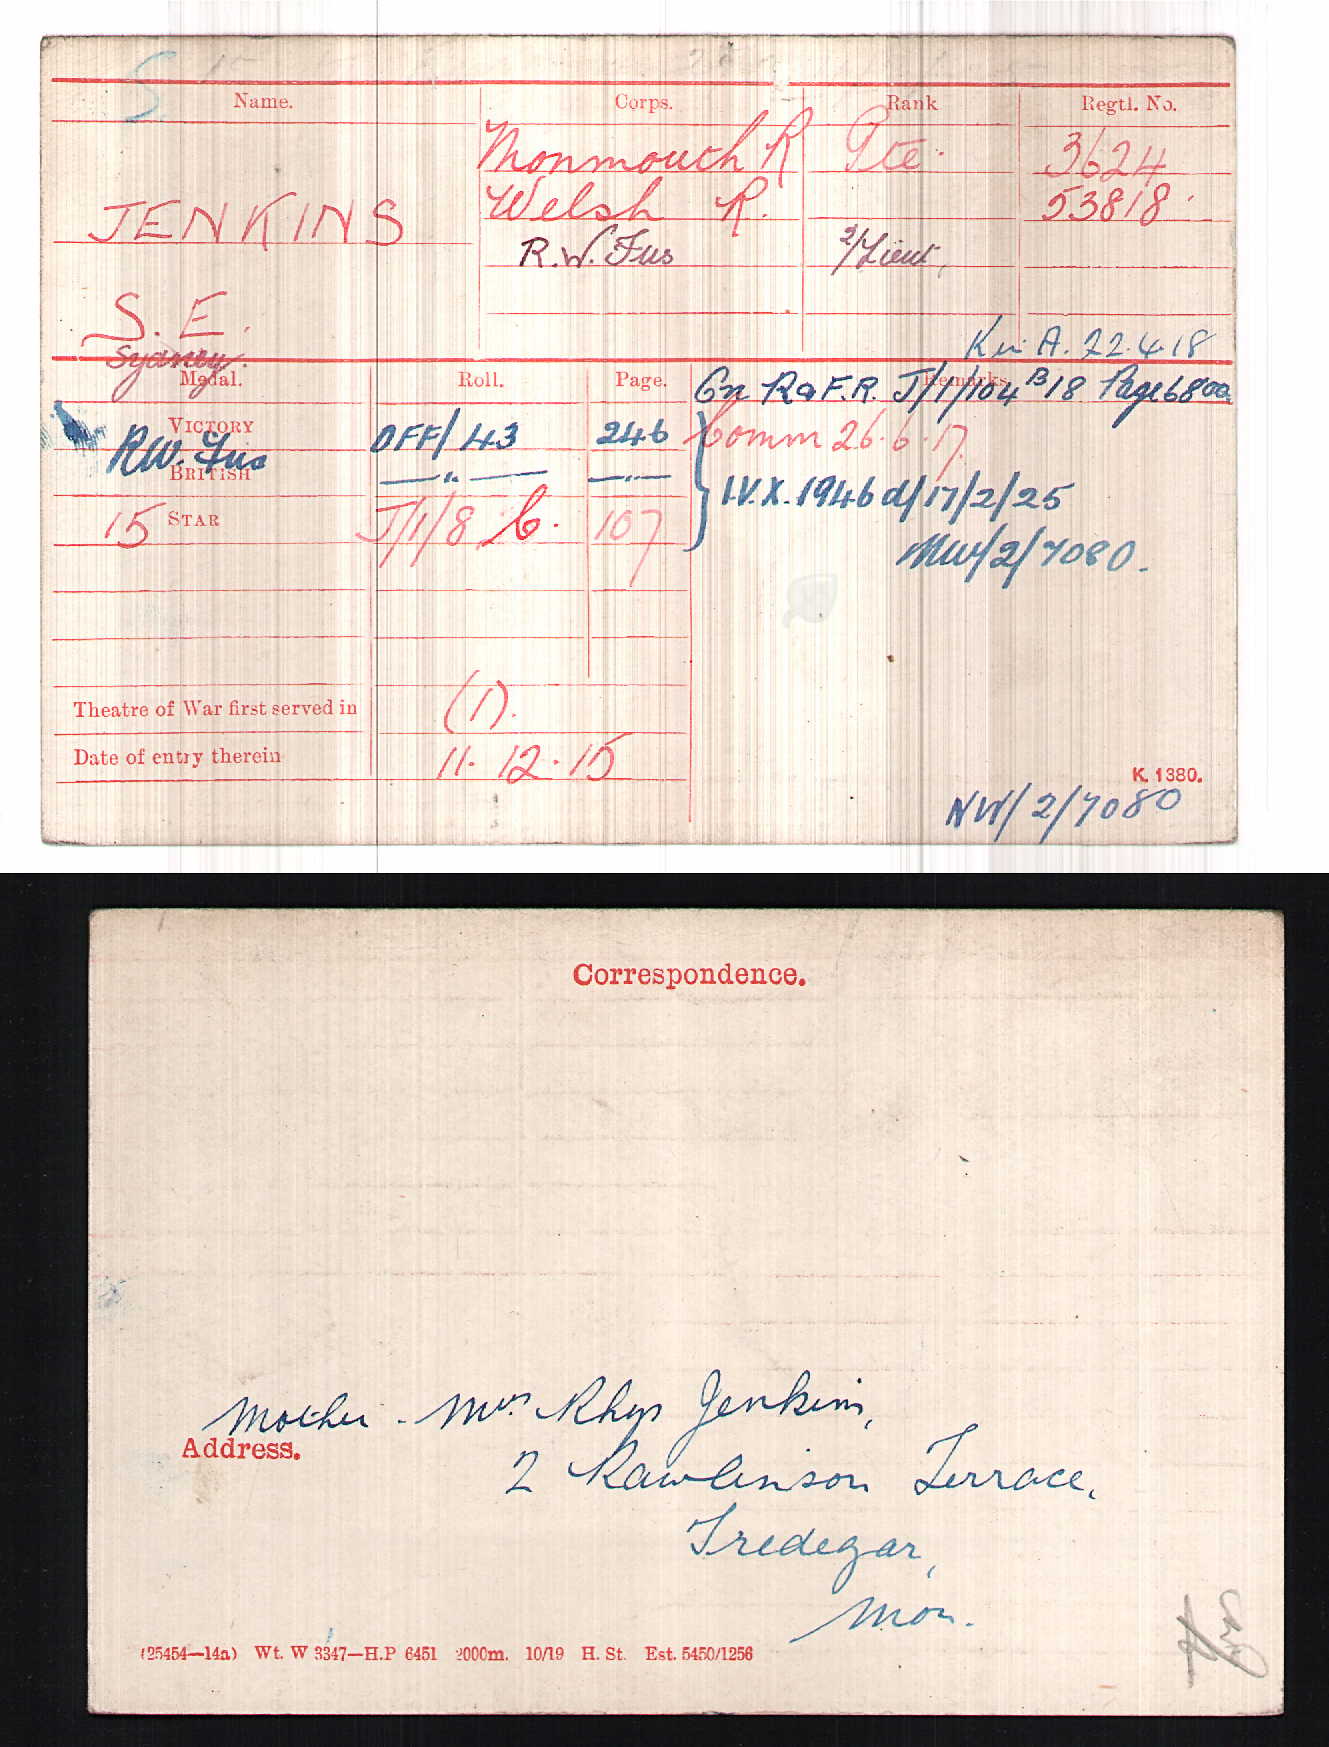 Name. Corps. Rank Regtl. No.
Monmouth R Pte. 3624
JENKINS Welsh R. 53818
R.W. Fus 2/Lieut,
S. E.
Sydney.
K in A. 22.4.18
Medal. Roll. Page. Remarks
Gn R & F.R. J/1/104 B18 Page 6800
VICTORY OFF/43 246 Comm 26.6.17
R.W. Fus
BRITISH —"— —"— I.V.X. 1946 d/17/2/25
15 STAR J/1/8 C. 107
NW/2/7080.
Theatre of War first served in (1).
Date of entry therein 11.12.15
K. 1380.
NW/2/7080
Correspondence.
Mother - Mrs. Rhys Jenkins,
Address.
2 Rawlinson Terrace,
Tredegar,
Mon.
(25454—14a) Wt. W 3347—H.P 6451 2000m. 10/19 H. St. Est. 5450/1256